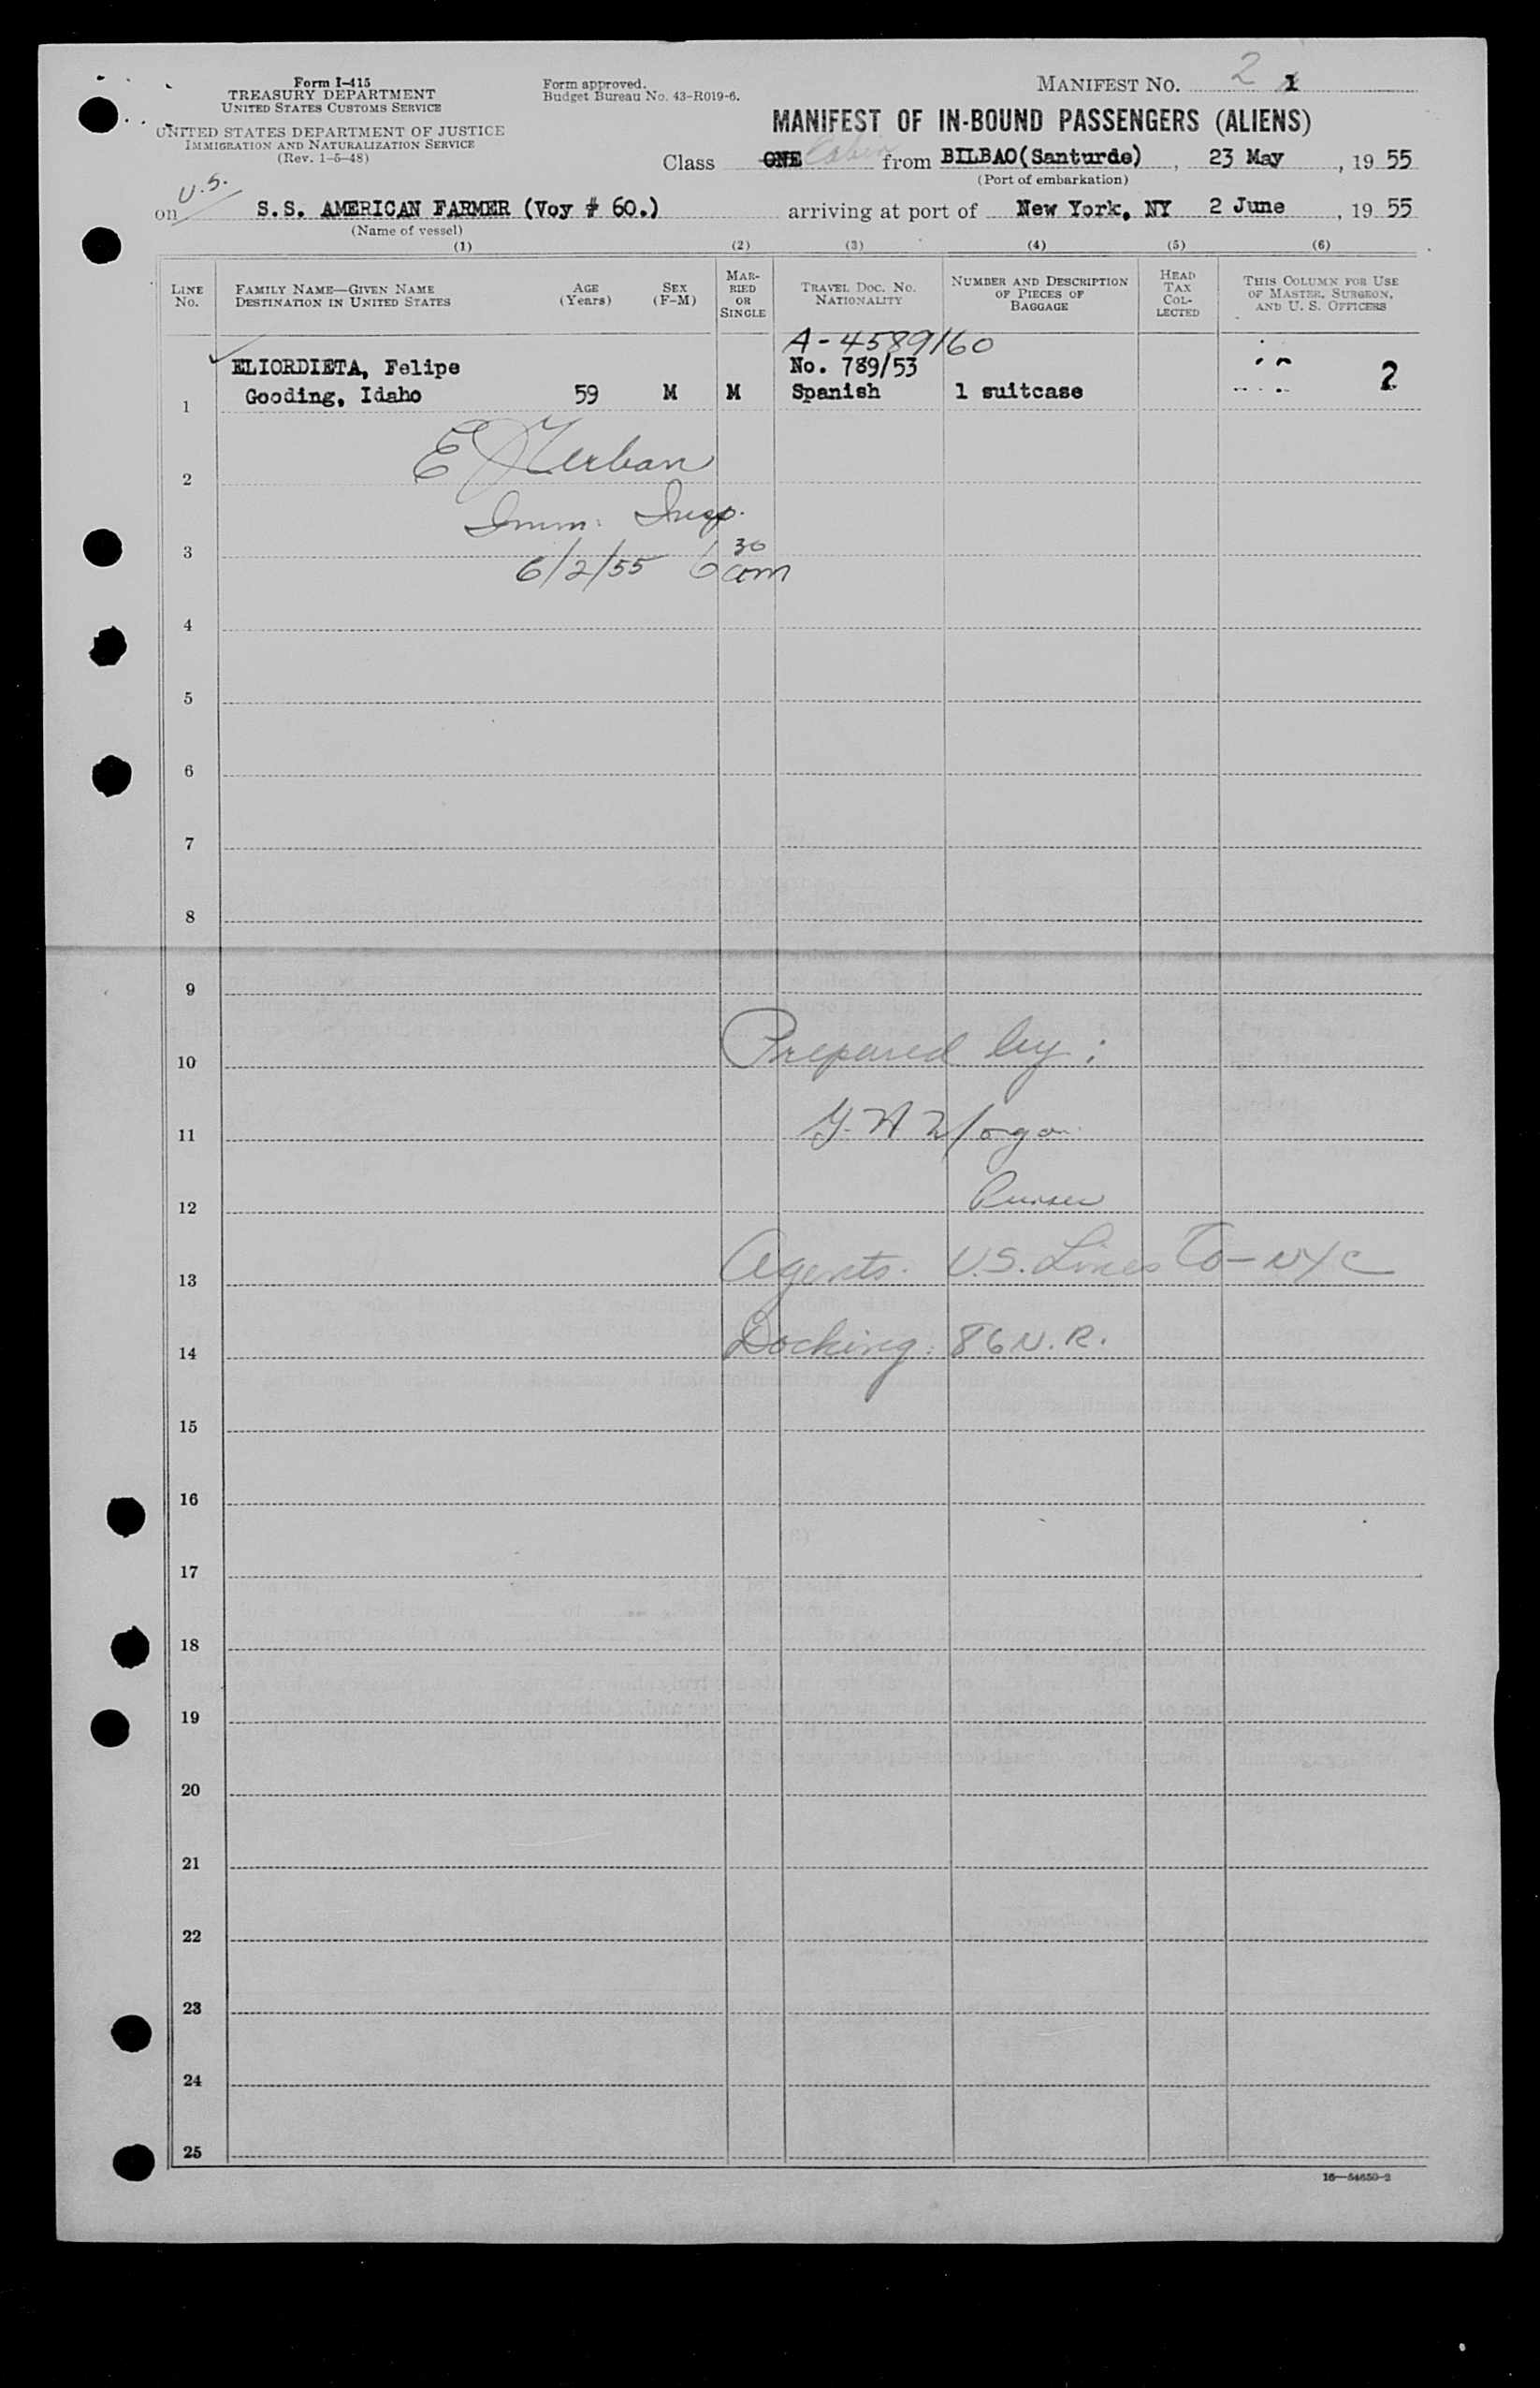 Form I-415
TREASURY DEPARTMENT
UNITED STATES CUSTOMS SERVICE
UNITED STATES DEPARTMENT OF JUSTICE
IMMIGRATION AND NATURALIZATION SERVICE
(Rev. 1-5-48)
Form approved.
Budget Bureau No. 43-R019-6.
MANIFEST NO. 2 1
MANIFEST OF IN-BOUND PASSENGERS (ALIENS)
Class ONE Cabin from BILBAO(Santurde), 23 May, 19 55
(Port of embarkation)
U.S.
on S.S. AMERICAN FARMER (Voy # 60.) arriving at port of New York, NY 2 June, 19 55
(Name of vessel)
(1) (2) (3) (4) (5) (6)
LINE NO.
FAMILY NAME—GIVEN NAME
DESTINATION IN UNITED STATES
AGE (Years)
SEX (F-M)
MARRIED OR SINGLE
TRAVEL DOC. NO.
NATIONALITY
NUMBER AND DESCRIPTION OF PIECES OF BAGGAGE
HEAD TAX COLLECTED
THIS COLUMN FOR USE OF MASTER, SURGEON, AND U. S. OFFICERS
A-4589160
ELIORDIETA, Felipe No. 789/53
1 Gooding, Idaho 59 M M Spanish 1 suitcase 2
2 E Zerban
Imm. Insp.
3 6/2/55 6 30 am
4
5
6
7
8
9
10 Prepared by:
11 Morgan
12 Purser
13 Agents. U.S. Lines Co - NYC
14 Docking: 86 N.R.
15
16
17
18
19
20
21
22
23
24
25
16—54650-2